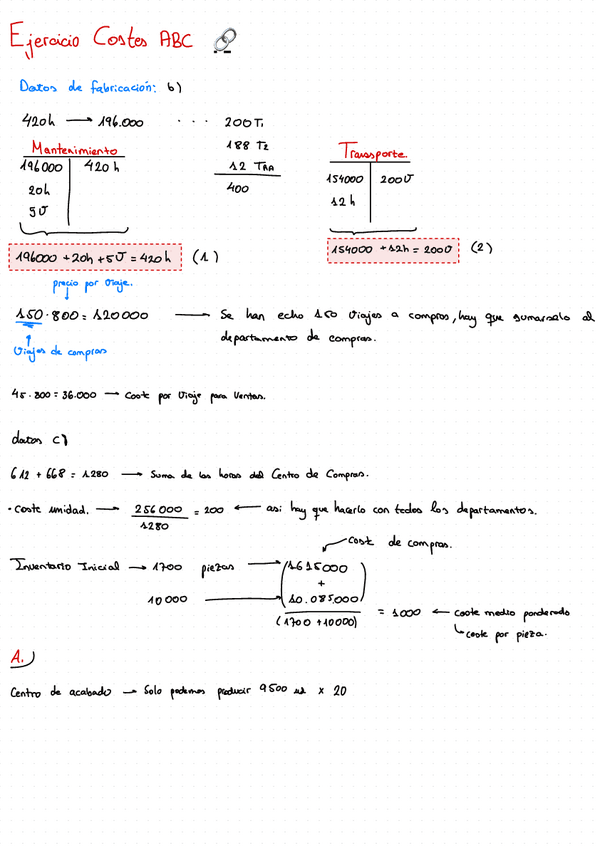 Ejercicio Costes ABC
Datos de fabricación: b)
420h → 196.000 ... 200 T1
188 T2
12 TRA
400
Mantenimiento
196000 | 420 h
20h
5J
Transporte
154000 | 200J
12 h
196000 + 20h + 5J = 420h (1)
154000 + 12h = 200J (2)
precio por viaje.
150 · 800 = 120000 → Se han echo 150 viajes a compras, hay que sumarselo al
departamento de compras.
Viajes de compras
45 · 800 = 36.000 → Coste por Viaje para Ventas.
datos c)
612 + 668 = 1280 → Suma de las horas del Centro de Compras.
· Coste unidad. → 256000 / 1280 = 200 ← asi hay que hacerlo con todos los departamentos.
coste de compras.
Inventario Inicial → 1700 piezas → (1615000
+
10000 → 10.085.000)
(1700 + 10000) = 1000 ← coste medio ponderado
coste por pieza.
A.)
Centro de acabado → Solo podemos producir 9500 ud x 20